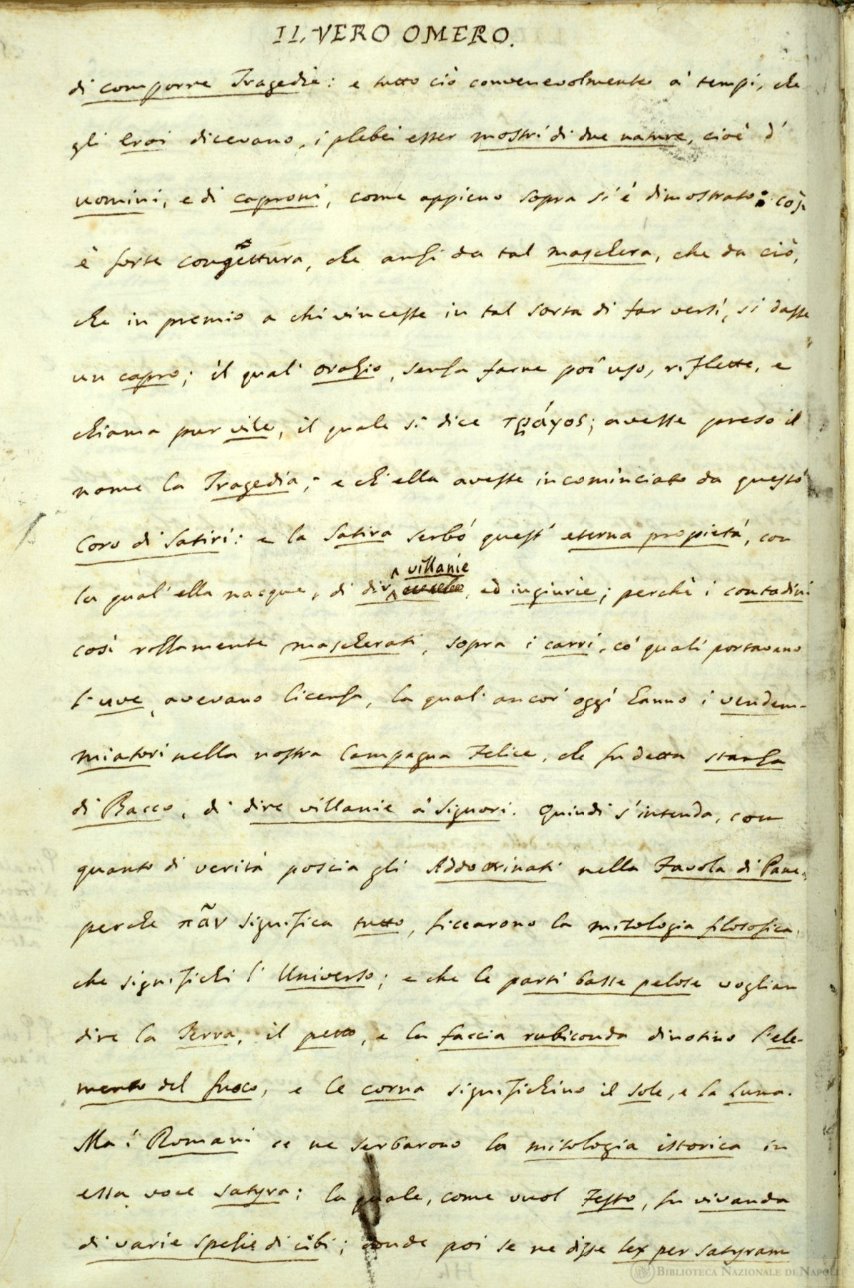 IL VERO OMERO.
di comporre Tragedie: e tutto ciò convenevolmente a' tempi, che
gli Eroi dicevano, i plebei esser mostri di due nature, cioè d'
uomini, e di caproni, come appieno sopra si è dimostrato: così
è forte congettura, che anzi da tal maschera, che da ciò,
che in premio a chi vincesse in tal sorta di far versi, si dasse
un capro; il qual' Orazio, senza farne poi uso, riflette, e
chiama pur vile, il quale si dice τράγος; avesse preso il
nome la Tragedia; e ch'ella avesse incominciato da questo
Coro di Satiri: e la Satira serbò quest' eterna propietà, con
villanie
la qual' ella nacque, di dir, ed ingiurie; perchè i contadini
così rozzamente mascherati, sopra i carri, co' quali portavano
l'uve, avevano licenza, la qual' ancor' oggi hanno i vendem-
miatori nella nostra Campagna Felice, che fu detta stanza
di Bacco, di dire villanie a' Signori. Quindi s'intenda, con
quanto di verità poscia gli Addottrinati nella Favola di Pane,
perche πᾶν significa tutto, ficcarono la mitologia filosofica,
che significhi l' Universo; e che le parti basse pelose voglian
dire la Terra, il petto, e la faccia rubiconda dinotino l'ele-
mento del fuoco, e le corna significhino il Sole, e la Luna.
Ma i Romani ce ne serbarono la mitologia istorica in
essa voce satyra; la quale, come vuol Festo, fu vivanda
di varie spezie di cibi; donde poi se ne disse lex per satyram
BIBLIOTECA NAZIONALE DI NAPOLI